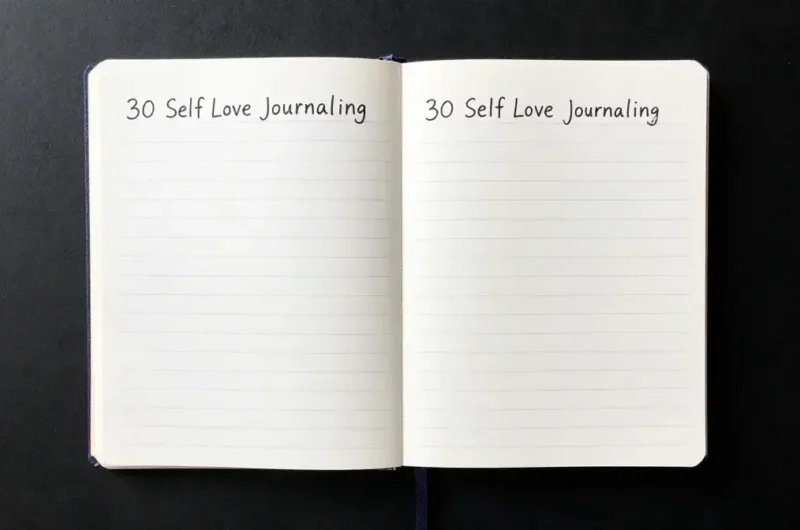 30 Self Love Journaling
30 Self Love Journaling